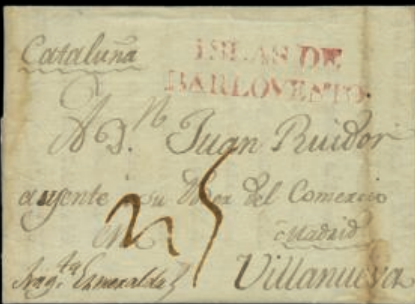 Cataluña
ISLAS DE
BARLOVENTO.
A D.ⁿ Juan
ausente su Poder del Comercio
en Madrid
Frag.ᵗᵃ Esmeralda Villanueva